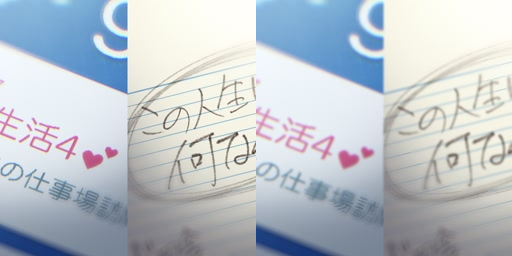 生活4
の仕事場訪
この人生
何てな
生活4
の仕事場訪
この人生
何てな